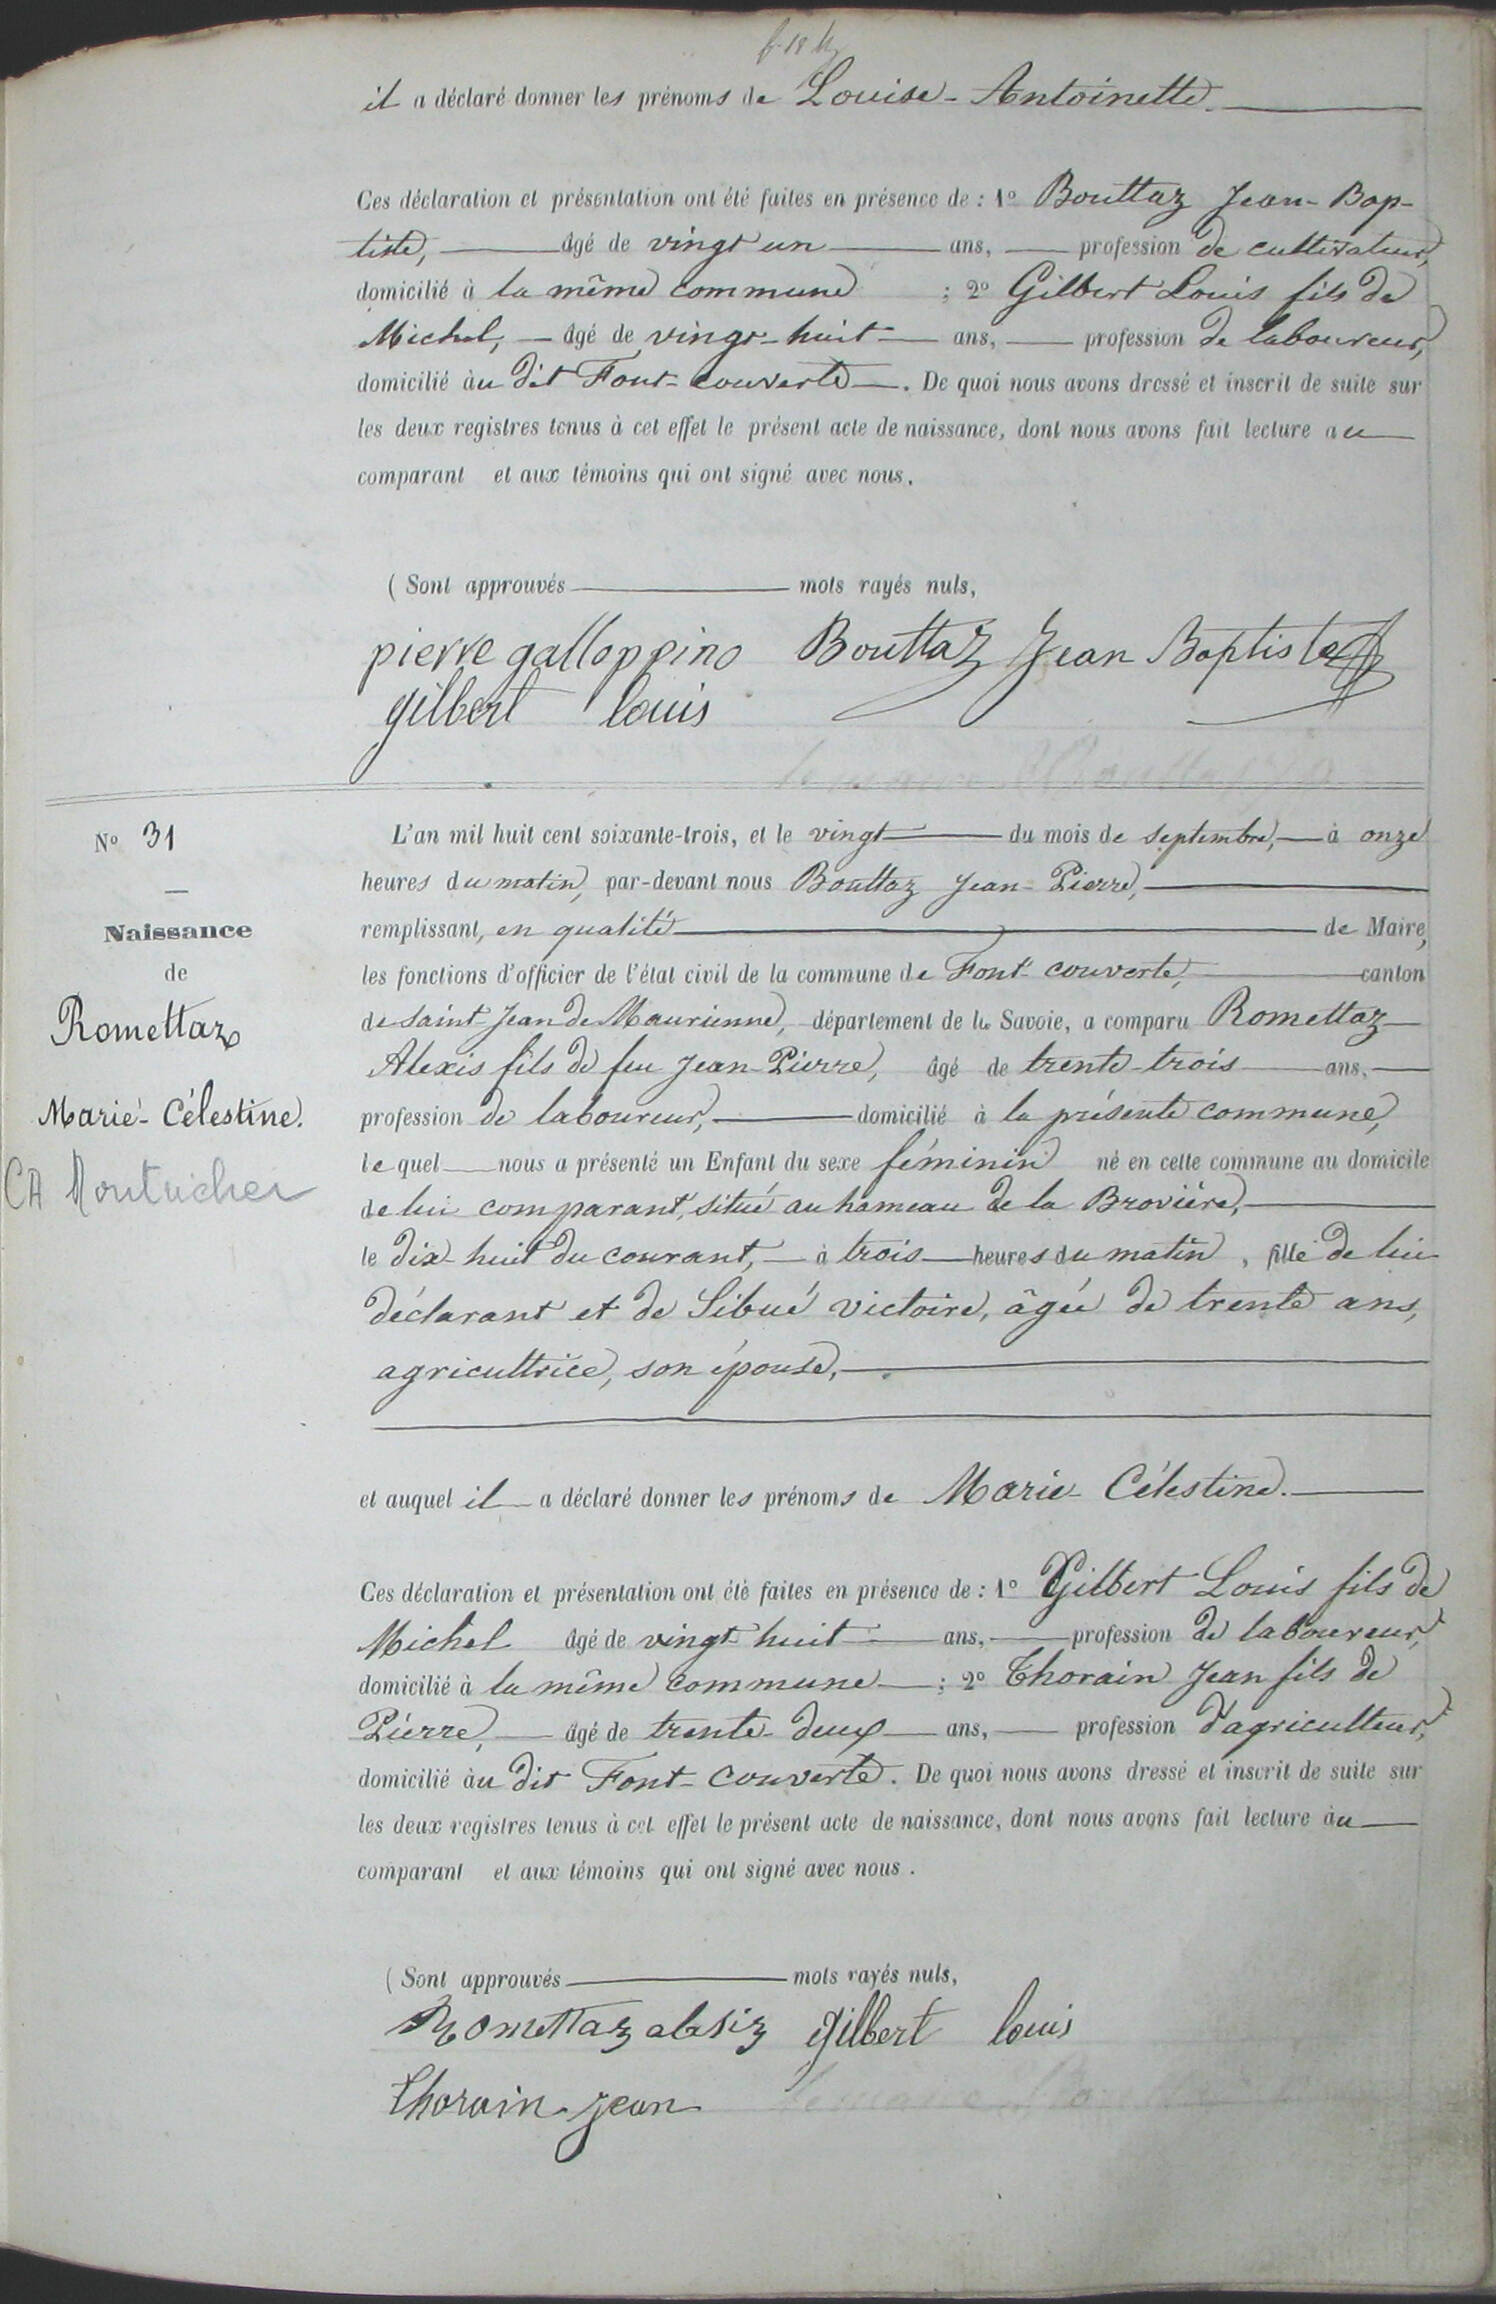 il a déclaré donner les prénoms de Louise-Antoinette.
Ces déclaration et présentation ont été faites en présence de : 1º Bouttaz Jean-Bap-
tiste, âgé de vingt un ans, profession de cultivateur,
domicilié à la même commune ; 2º Gilbert Louis fils de
Michel, âgé de vingt-huit ans, profession de laboureur,
domicilié àu dit Font-couverte. De quoi nous avons dressé et inscrit de suite sur
les deux registres tenus à cet effet le présent acte de naissance, dont nous avons fait lecture au
comparant et aux témoins qui ont signé avec nous.
( Sont approuvés mots rayés nuls,
pierre galloppino Bouttaz Jean Baptiste
gilbert louis
Nº 31
Naissance
de
Romettaz
Marie-Célestine.
L'an mil huit cent soixante-trois, et le vingt du mois de septembre, à onze
heures du matin, par-devant nous Bouttaz Jean-Pierre,
remplissant, en qualité de Maire,
les fonctions d'officier de l'état civil de la commune de Font-couverte, canton
de saint-Jean de Maurienne, département de la Savoie, a comparu Romettaz
Alexis fils de feu Jean-Pierre, âgé de trente-trois ans,
profession de laboureur, domicilié à la présente commune,
lequel nous a présenté un Enfant du sexe féminin né en cette commune au domicile
de lui comparant, situé au hameau de la Brovière,
le dix-huit du courant, à trois heures du matin, fille de lui
déclarant et de Sibué victoire, âgée de trente ans,
agricultrice, son épouse,
et auquel il a déclaré donner les prénoms de Marie-Célestine.
Ces déclaration et présentation ont été faites en présence de : 1º Gilbert Louis fils de
Michel âgé de vingt-huit ans, profession de laboureur,
domicilié à la même commune ; 2º Thorain Jean fils de
Pierre, âgé de trente-deux ans, profession d'agriculteur,
domicilié àu dit Font-couverte. De quoi nous avons dressé et inscrit de suite sur
les deux registres tenus à cet effet le présent acte de naissance, dont nous avons fait lecture àu
comparant et aux témoins qui ont signé avec nous.
( Sont approuvés mots rayés nuls,
Romettaz alesiz gilbert louis
Thorain Jean